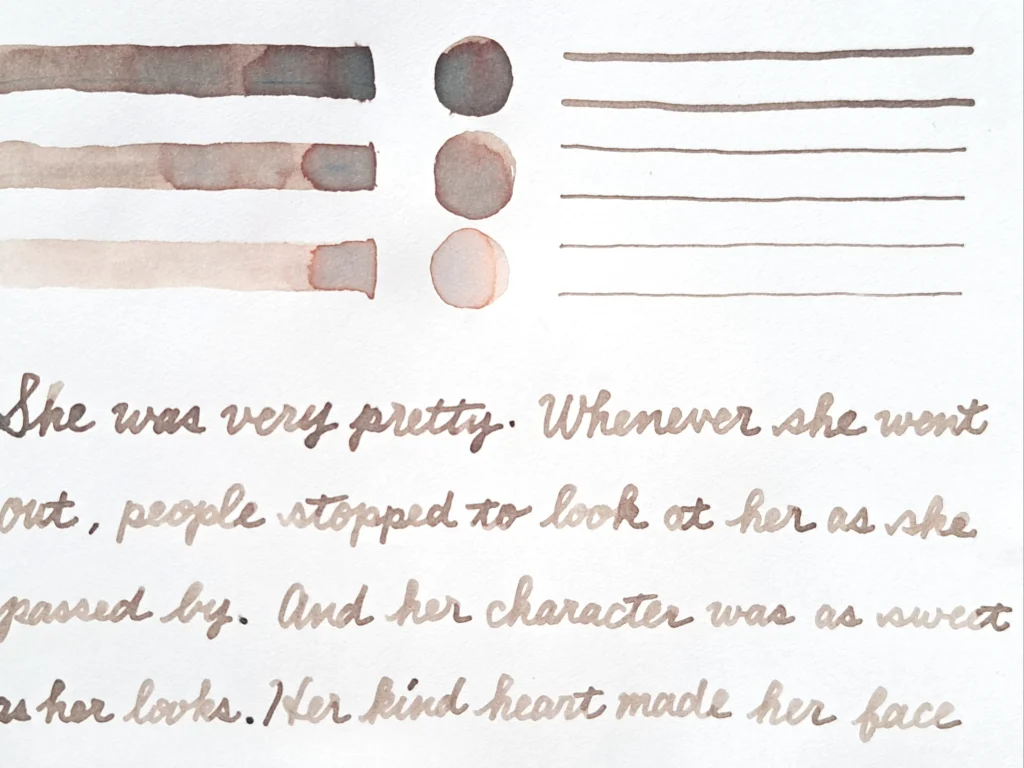 She was very pretty. Whenever she went
out, people stopped to look at her as she
passed by. And her character was as sweet
as her looks. Her kind heart made her face